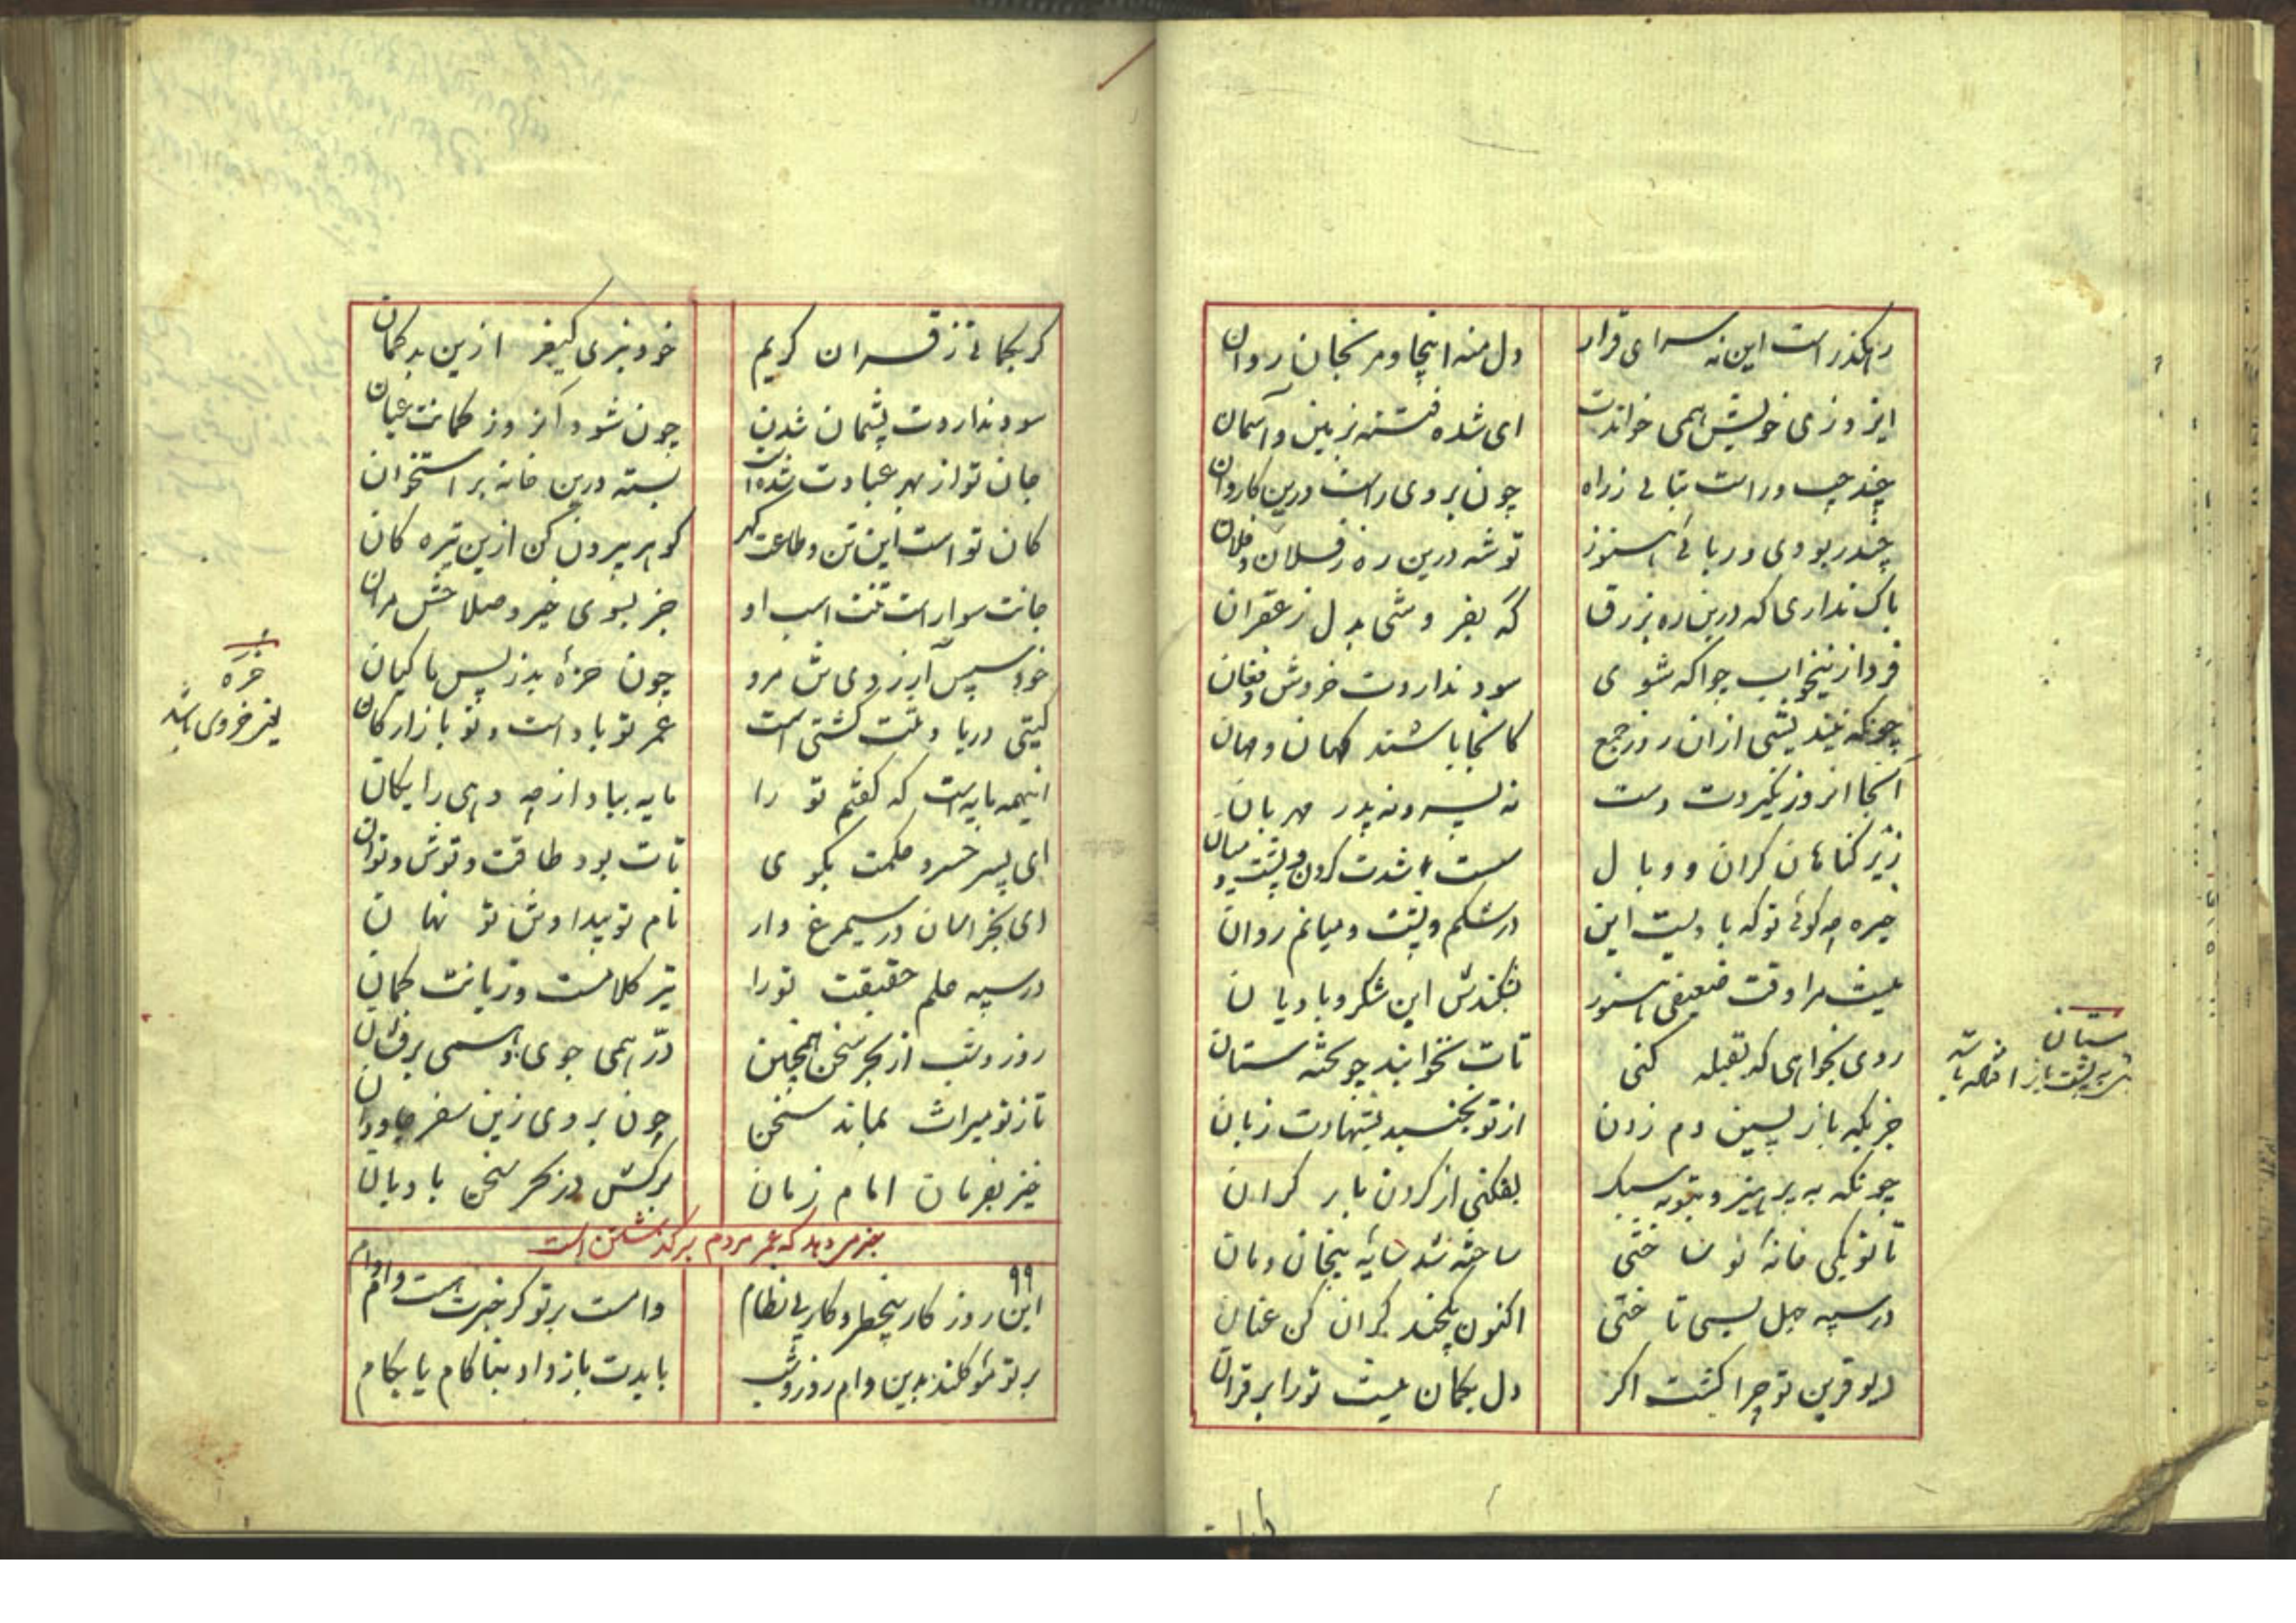 رهگذر است این نه سرای قرار دل منه اینجا و مرنجان روان
ایزد زی خویش همی خواندت ای شده فتنه بزمین و آسمان
چند چپ و راست بتابی ز راه چون نروی راست درین کاروان
چند ربودی و ربائی هنوز توشه درین ره ز فلان و فلان
باک نداری که درین ره بزرق که بفروشی بدل زعفران
فردا زینخواب چو آگه شوی سود نداردت خروش و فغان
چونکه نیندیشی از ان روز جمع کانجا باشند کهان و مهان
آنجا انروز نگیردت دست نه پسر و نه پدر مهربان
زیر گناهان گران و وبال سست شدت گردن و پشت و میان
خیره چه گوئی تو که بادیست این در شکم و پشت و میانم روان
نیست مرا وقت ضعیفی هنوز بشکندش این شکر و بادیان
روی نخواهی که بقبله کنی تات نخوابند چو تخته ستان
جز بگه باز پسین دم زدن از تو نجنبد بشهادت زبان
چونکه به پرهیز و بتوبه سبک نفکنی از گردن بار گران
تا تو یکی خانه نو ساختی ساخته شد خانه بیخان و مان
در سپه جهل بسی تاختی اکنون یکچند گران کن عنان
دیو قرین تو چرا گشت اگر دل بگمان نیست تو را بر قران
ستان
بر پشت باز افتاده باشد
گر بگمانی ز قران کریم خود ببری کیفر ازین بد گمان
سود نداردت پشیمان شدن چون شود آنروز گمانت عیان
جان تو از بهر عبادت شده است بسته درین خانه پر استخوان
کان تو است این تن و طاعت گهر گوهر بیرون کن ازین تیره کان
جانت سوار است تنت اسب او جز بسوی خیر و صلاحش مران
خود سپس آرزوی تن مرو چون خرهٔ بد ز پس ماکیان
گیتی دریا و تنت کشتی است عمر تو باد است و تو بازارگان
اینهمه مایه است که گفتم تو را مایه بباد از چه دهی رایگان
ای پسر خسرو حکمت بگوی تات بود طاقت و توش و توان
ای بخراسان در سیمرغ وار نام تو پیدا و تن تو نهان
در سپه علم حقیقت تو را تیر کلامست و زبانت کمان
روز و شب از بحر سخن همچنین در همی جوی و همی برفشان
تا ز تو میراث بماند سخن چون بروی زین سفر جاودان
خیز بفرمان امام زمان برکش در بحر سخن بادبان
خبر می دهد که عمر مردم برگذشتن است
۹۹
این روز کار بیخطر و کار بی نظام وامست بر تو گر خبرت هست وام وام
بر تو مؤکلند بدین وام روز و شب بایدت باز داد بناکام یا بکام
خره
یعنی خروس باشد